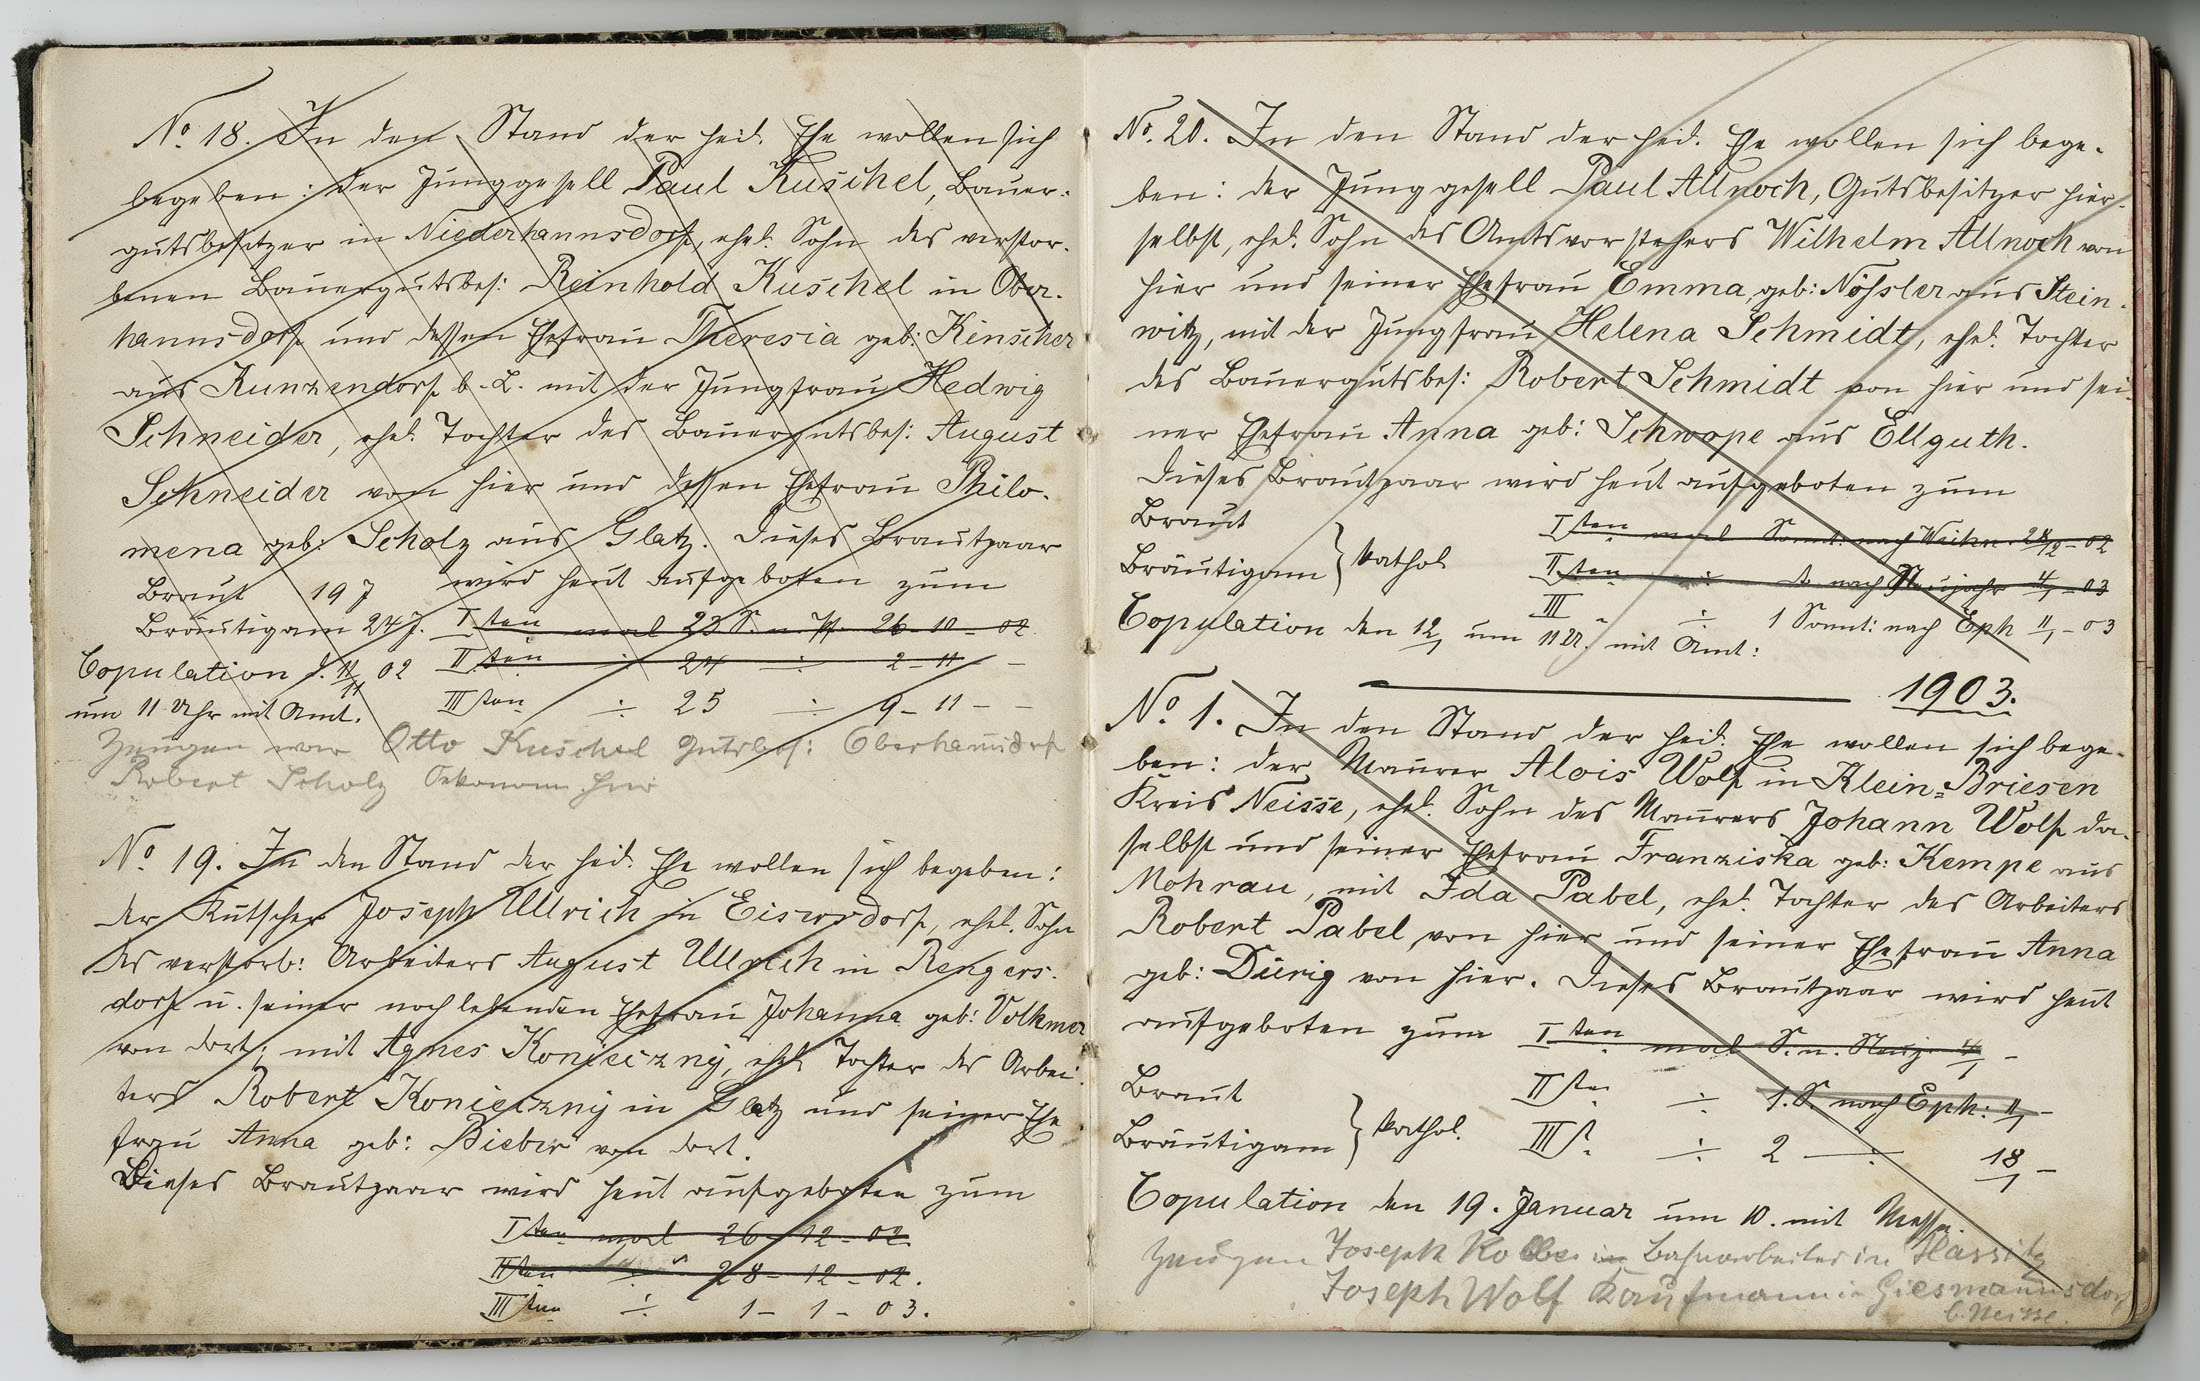 No 18. In den Stand der heil. Ehe wollen sich
begeben: der Junggesell Paul Kuschel, Bauer-
gutsbesitzer in Niederhannsdorf, ehel. Sohn des verstor-
benen Bauergutsbes: Reinhold Kuschel in Ober-
hannsdorf und dessen Ehefrau Theresia geb: Kinscher
aus Kunzendorf b. L. mit der Jungfrau Hedwig
Schneider, ehel. Tochter des Bauergutsbes: August
Schneider von hier und dessen Ehefrau Philo-
mena geb: Scholz aus Glatz. Dieses Brautpaar
Braut 19 J wird heut aufgeboten zum
Bräutigam 24 J. I ten mal 23 S. n. Pf. 26-10-02
Copulation d. 11/11 02 II ten ÷ 24 ÷ 2-11 -
um 11 Uhr mit Amt. III ten ÷ 25 ÷ 9-11 - -
Zeugen war Otto Kuschel Gutsbes: Oberhannsdorf
Robert Scholz Oekonom hier
No 19. In den Stand der heil. Ehe wollen sich begeben:
der Kutscher Joseph Ullrich in Eisersdorf, ehel. Sohn
des verstorb: Arbeiters August Ullrich in Rengers-
dorf u. seiner noch lebenden Ehefrau Johanna geb: Volkmer
von dort; mit Agnes Konieczny, ehel. Tochter des Arbei-
ters Robert Konieczny in Glatz und seiner Ehe
frau Anna geb: Bieber von dort.
Dieses Brautpaar wird heut aufgeboten zum
I ten mal 26-12-02.
II ten ÷ 28-12-02.
III ten ÷ 1-1-03.
No. 20. In den Stand der heil. Ehe wollen sich bege-
ben: der Junggesell Paul Allnoch, Gutsbesitzer hier-
selbst, ehel. Sohn des Amtsvorstehers Wilhelm Allnoch von
hier und seiner Ehefrau Emma, geb: Nößler aus Stein-
witz, mit der Jungfrau Helena Schmidt, ehel. Tochter
des Bauergutsbes: Robert Schmidt von hier und sei-
ner Ehefrau Anna geb: Schwope aus Ellguth.
Dieses Brautpaar wird heut aufgeboten zum
Braut I ten mal Sonnt: nach Weihn. 28/12-02
Bräutigam } kathol. II ten ÷ d. nach Neujahr 4/1-03
III ÷ 1 Sonnt: nach Eph 11/1-03
Copulation den 12/1 um 11 U. mit Amt:
1903.
No 1. In den Stand der heil. Ehe wollen sich bege-
ben: der Maurer Alois Wolf in Klein-Briesen
Kreis Neisse, ehel. Sohn des Maurers Johann Wolf da-
selbst und seiner Ehefrau Franziska geb: Kempe aus
Mohrau, mit Ida Pabel, ehel. Tochter des Arbeiters
Robert Pabel von hier und seiner Ehefrau Anna
geb: Dürig von hier. Dieses Brautpaar wird heut
aufgeboten zum I ten mal S. n. Neuj. 4/1 -
Braut II ten ÷ 1. S. nach Eph: 11/1 -
Bräutigam } kathol. III t. ÷ 2 ÷ 18/1 -
Copulation den 19. Januar um 10. mit Messe.
Zeugen Joseph in Bahnarbeiter in Hassitz
Joseph Wolf Kaufmann in Giesmannsdorf
b. Neisse.